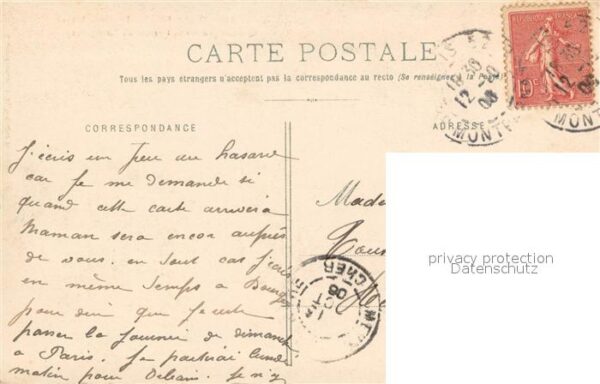 CARTE POSTALE
Tous les pays étrangers n'acceptent pas la correspondance au recto (Se renseigner à la Poste)
RÉPUBLIQUE FRANÇAISE
10c
12 30
12
06
MONTR
CORRESPONDANCE
ADRESSE
J'écris un peu au hasard
car je me demande si
quand cette carte arrivera
Maman sera encor auprès
de vous. en tout cas j'écris
en même temps à Bourges
pour dire que je
passer la journée de dimanche
à Paris. Je partirai lundi
matin pour Orléans. Je n'y
Mada
CHER
OCT
06
privacy protection
Datenschutz